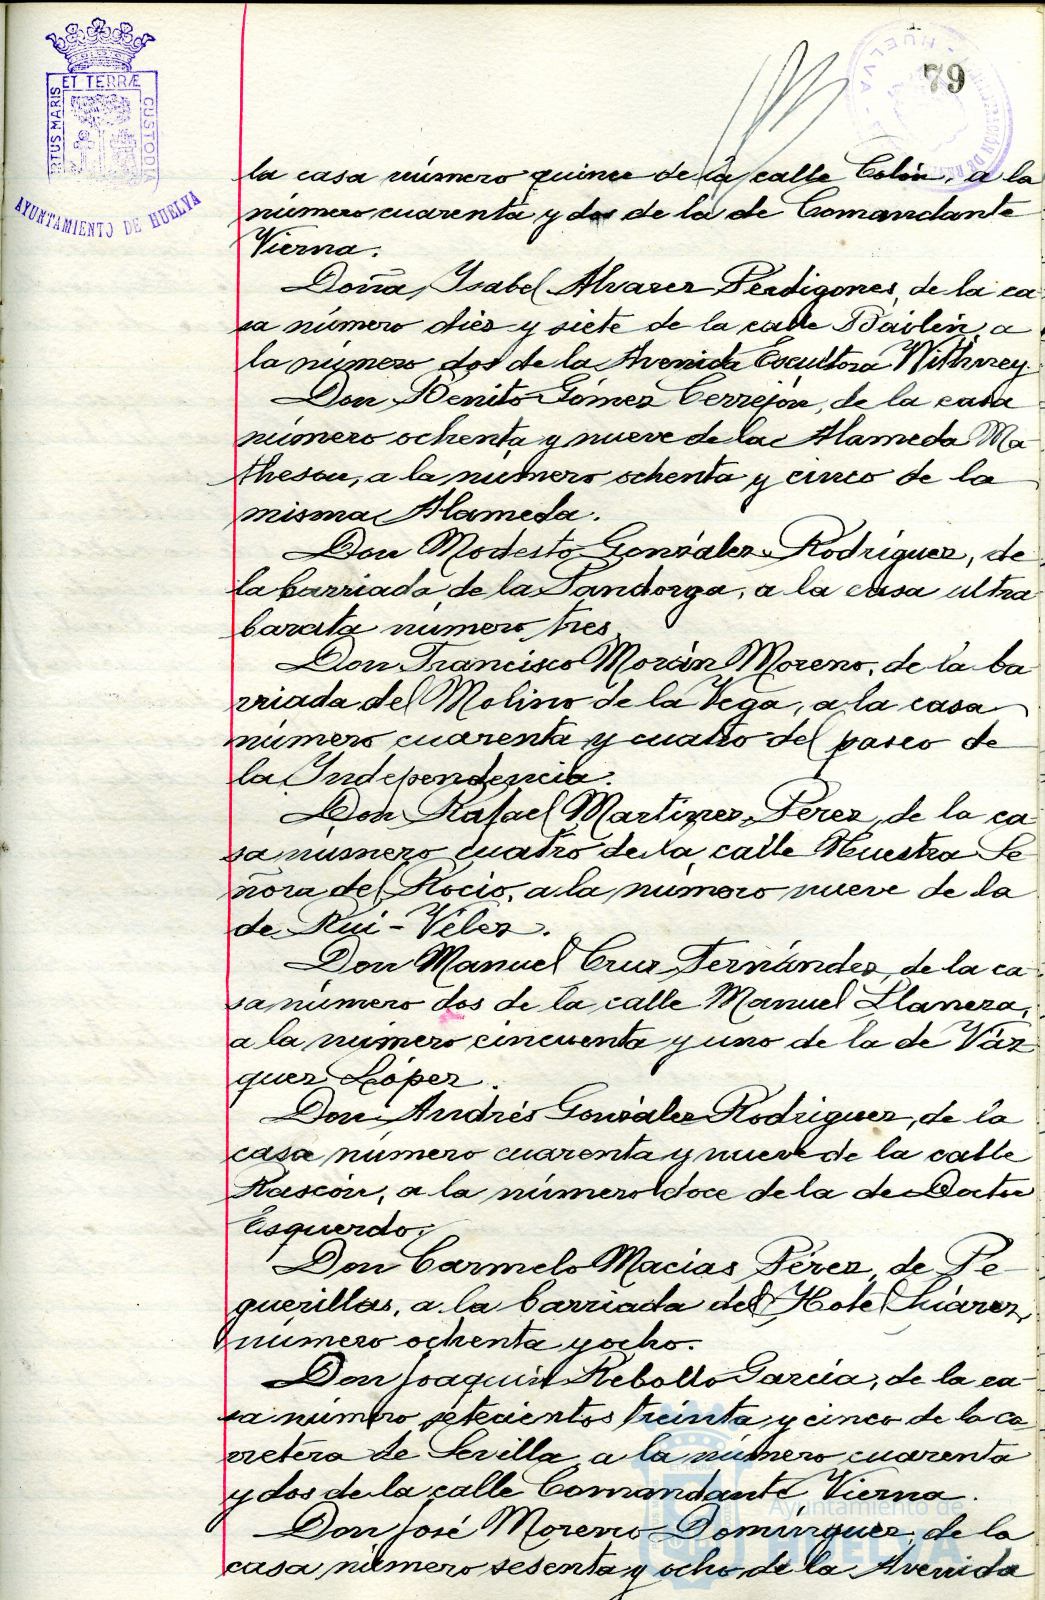 79
ET TERRÆ
PORTUS MARIS
CUSTODIA
AYUNTAMIENTO DE HUELVA
la casa número quince de la calle Colón, a la
número cuarenta y dos de la de Comandante
Vierna.
Doña, Ysabel Alvarez Perdigones, de la ca
sa número diez y siete de la calle Bailén, a
la número dos de la Avenida Escultora Withney.
Don Benito Gómez Cerrejón, de la casa
número ochenta y nueve de la Alameda Ma-
theson, a la número ochenta y cinco de la
misma Alameda.
Don Modesto González Rodríguez, de
la barriada de la Pandorga, a la casa ultra
barata número tres
Don Francisco Morán Moreno, de la ba
rriada del Molino de la Vega, a la casa
número cuarenta y cuatro del paseo de
la Independencia.
Don Rafael Martínez Pérez, de la ca
sa número cuatro de la calle Nuestra Se
ñora del Rocio, a la número nueve de la
de Rui-Vélez.
Don Manuel Cruz Fernández, de la ca
sa número dos de la calle Manuel Llaneza,
a la número cincuenta y uno de la de Váz
quez López.
Don Andrés González Rodríguez, de la
casa número cuarenta y nueve de la calle
Rascón, a la número doce de la de Doctor
Esquerdo.
Don Carmelo Macías Pérez, de Pe-
guerillas, a la barriada del Hotel Suárez,
número ochenta y ocho.
Don Joaquín Rebollo García, de la ca
sa número setecientos treinta y cinco de la ca
rretera de Sevilla, a la número cuarenta
y dos de la calle Comandante Vierna.
Don José Moreno Domínguez, de la
casa número sesenta y ocho, de la Avenida
Ayuntamiento de
HUELVA